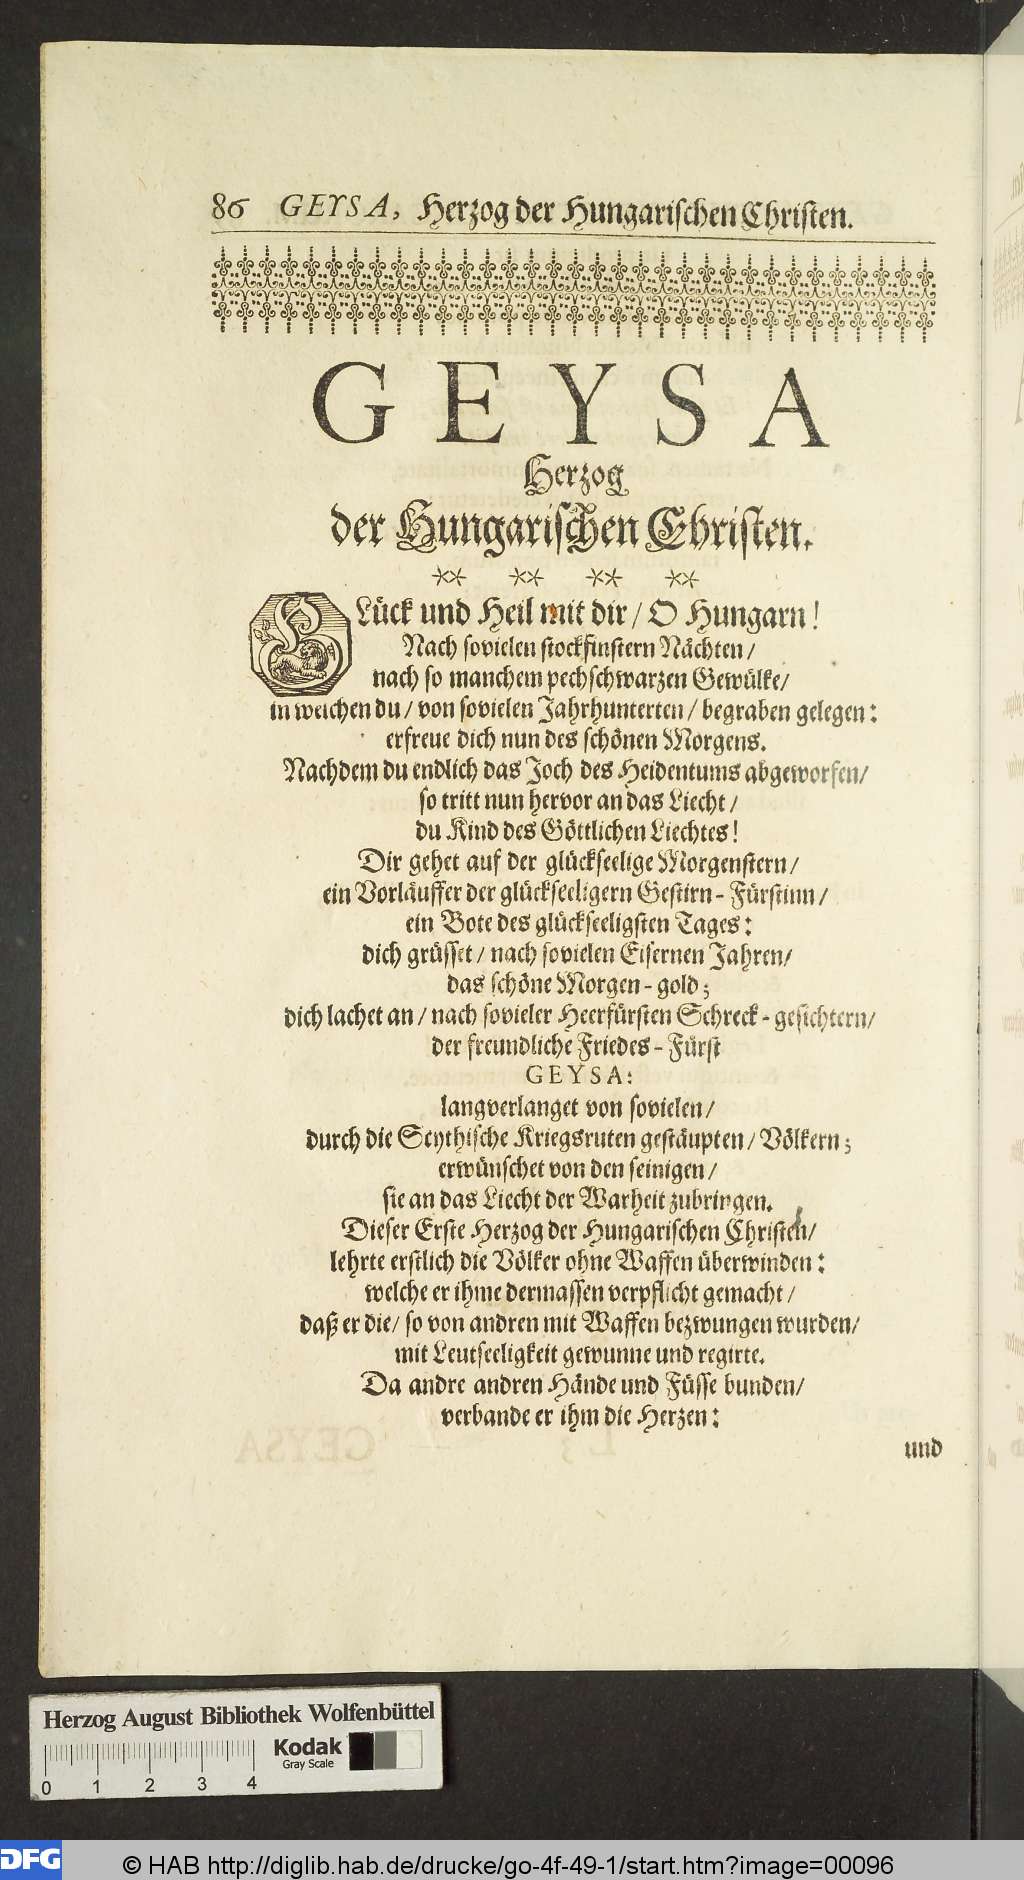 86 GEYSA, Herzog der Hungarischen Christen.
GEYSA
Herzog
der Hungarischen Christen.
GLück und Heil mit dir / O Hungarn!
Nach sovielen stockfinstern Nächten /
nach so manchem pechschwarzen Gewülke /
in welchen du / von sovielen Jahrhunterten / begraben gelegen:
erfreue dich nun des schönen Morgens.
Nachdem du endlich das Joch des Heidentums abgeworfen /
so tritt nun hervor an das Liecht /
du Kind des Göttlichen Liechtes!
Dir gehet auf der glückseelige Morgenstern /
ein Vorläuffer der glückseeligern Gestirn-Fürstinn /
ein Bote des glückseeligsten Tages:
dich grüsset / nach sovielen Eisernen Jahren /
das schöne Morgen-gold;
dich lachet an / nach sovieler Heerfürsten Schreck-gesichtern /
der freundliche Friedes-Fürst
GEYSA:
langverlanget von sovielen /
durch die Scythische Kriegsruten gestäupten / Völkern;
erwünschet von den seinigen /
sie an das Liecht der Warheit zubringen.
Dieser Erste Herzog der Hungarischen Christen /
lehrte erstlich die Völker ohne Waffen überwinden:
welche er ihme dermassen verpflicht gemacht /
daß er die / so von andren mit Waffen bezwungen wurden /
mit Leutseeligkeit gewunne und regirte.
Da andre andren Hände und Füsse bunden /
verbande er ihm die Herzen:
und
Herzog August Bibliothek Wolfenbüttel
Kodak
Gray Scale
0 1 2 3 4
DFG
© HAB http://diglib.hab.de/drucke/go-4f-49-1/start.htm?image=00096